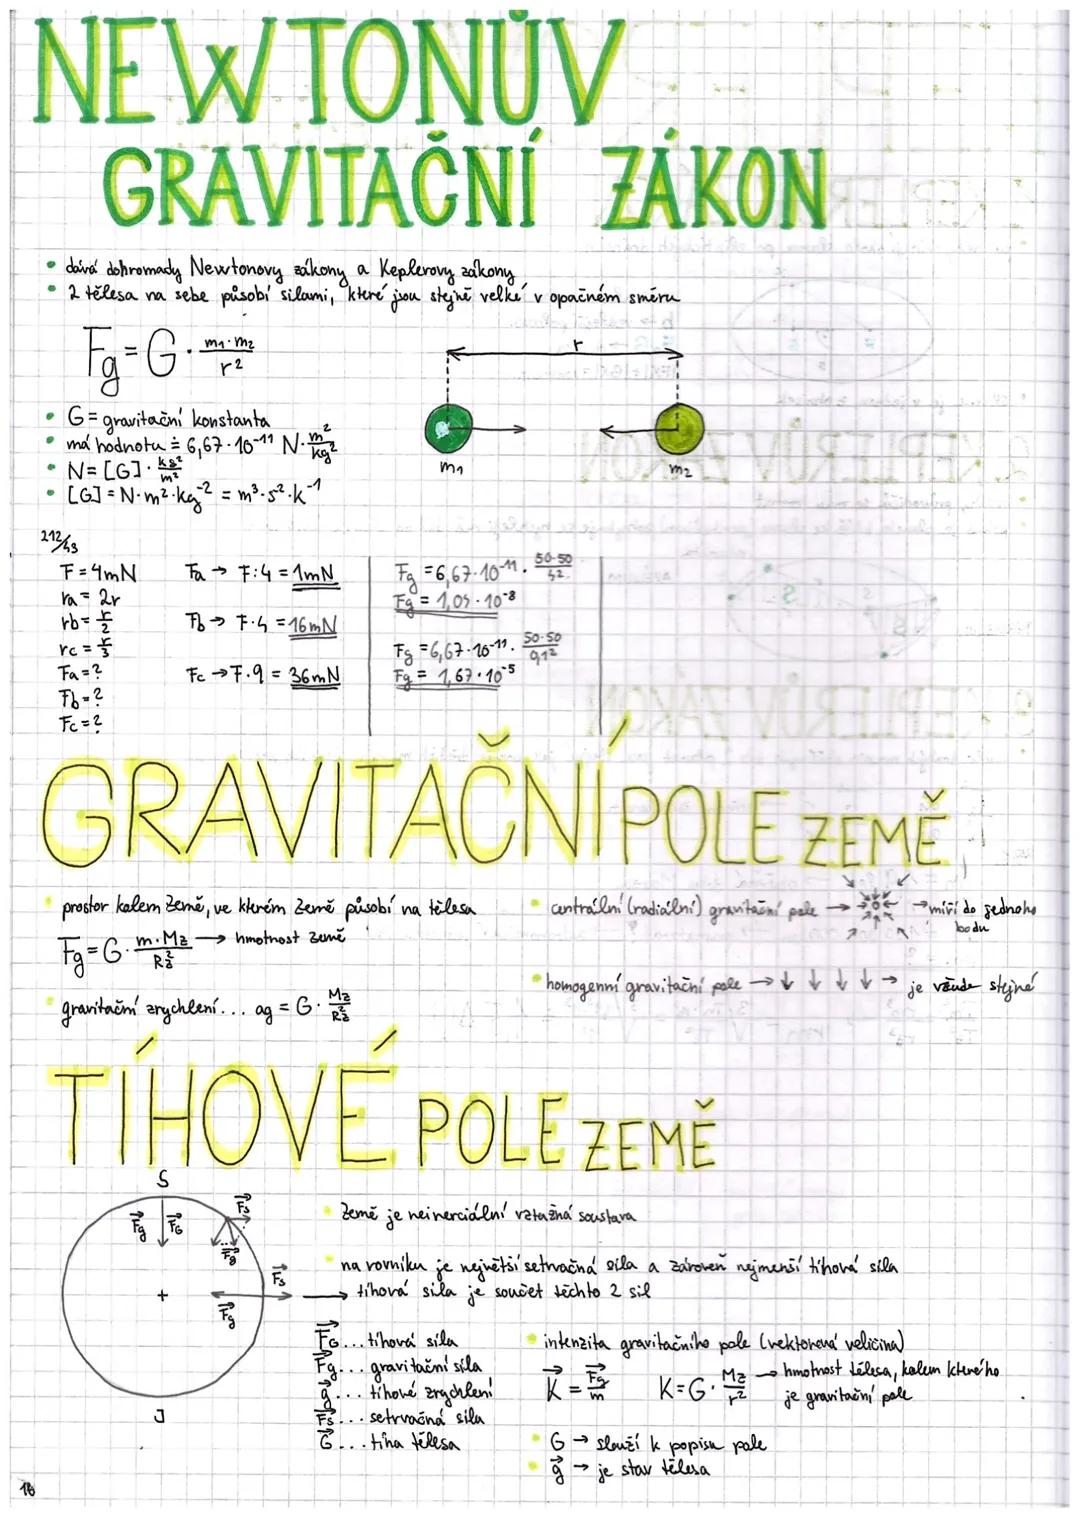 NEWTONŮV
GRAVITAČNÍ ZÁKON
• dává dohromady Newtonovy zákony a Keplerovy zákony
• 2 tělesa na sebe působí silami, které jsou stejně velké v opačném směru
Fg = G · m1·m2 / r²
r
m1
m2
• G = gravitační konstanta
• má hodnotu ≐ 6,67·10⁻¹¹ N·m²/kg²
• N = [G] · kg²/m²
• [G] = N·m²·kg⁻² = m³·s²·k⁻¹
212/43
F = 4mN
ra = 2r
rb = r/2
rc = r/3
Fa = ?
Fb = ?
Fc = ?
Fa → F:4 = 1mN
Fb → F·4 = 16mN
Fc → F·9 = 36mN
Fg = 6,67·10⁻¹¹ · 50·50
Fg = 1,05·10⁻⁸
Fg = 6,67·10⁻¹¹ · 50·50 / 0,1²
Fg = 1,67·10⁻⁵
GRAVITAČNÍ POLE ZEMĚ
• prostor kolem Země, ve kterém Země působí na tělesa
Fg = G · m·Mz / Rz² → hmotnost Země
• gravitační zrychlení... ag = G · Mz / Rz²
• centrální (radiální) gravitační pole → → míří do jednoho bodu
• homogenní gravitační pole → ↓ ↓ ↓ ↓ → je všude stejné
TÍHOVÉ POLE ZEMĚ
S
Fg FG
Fs
Fg
Fs
Fg
J
• Země je neinerciální vztažná soustava
• na rovníku je největší setrvačná síla a zároveň nejmenší tíhová síla
→ tíhová síla je součet těchto 2 sil
FG... tíhová síla
Fg... gravitační síla
g... tíhové zrychlení
Fs... setrvačná síla
G... tíha tělesa
• intenzita gravitačního pole (vektorová veličina)
K = Fg / m K = G · Mz / r² → hmotnost tělesa, kolem kterého
je gravitační pole
• G → slouží k popisu pole
• g → je stav tělesa
18